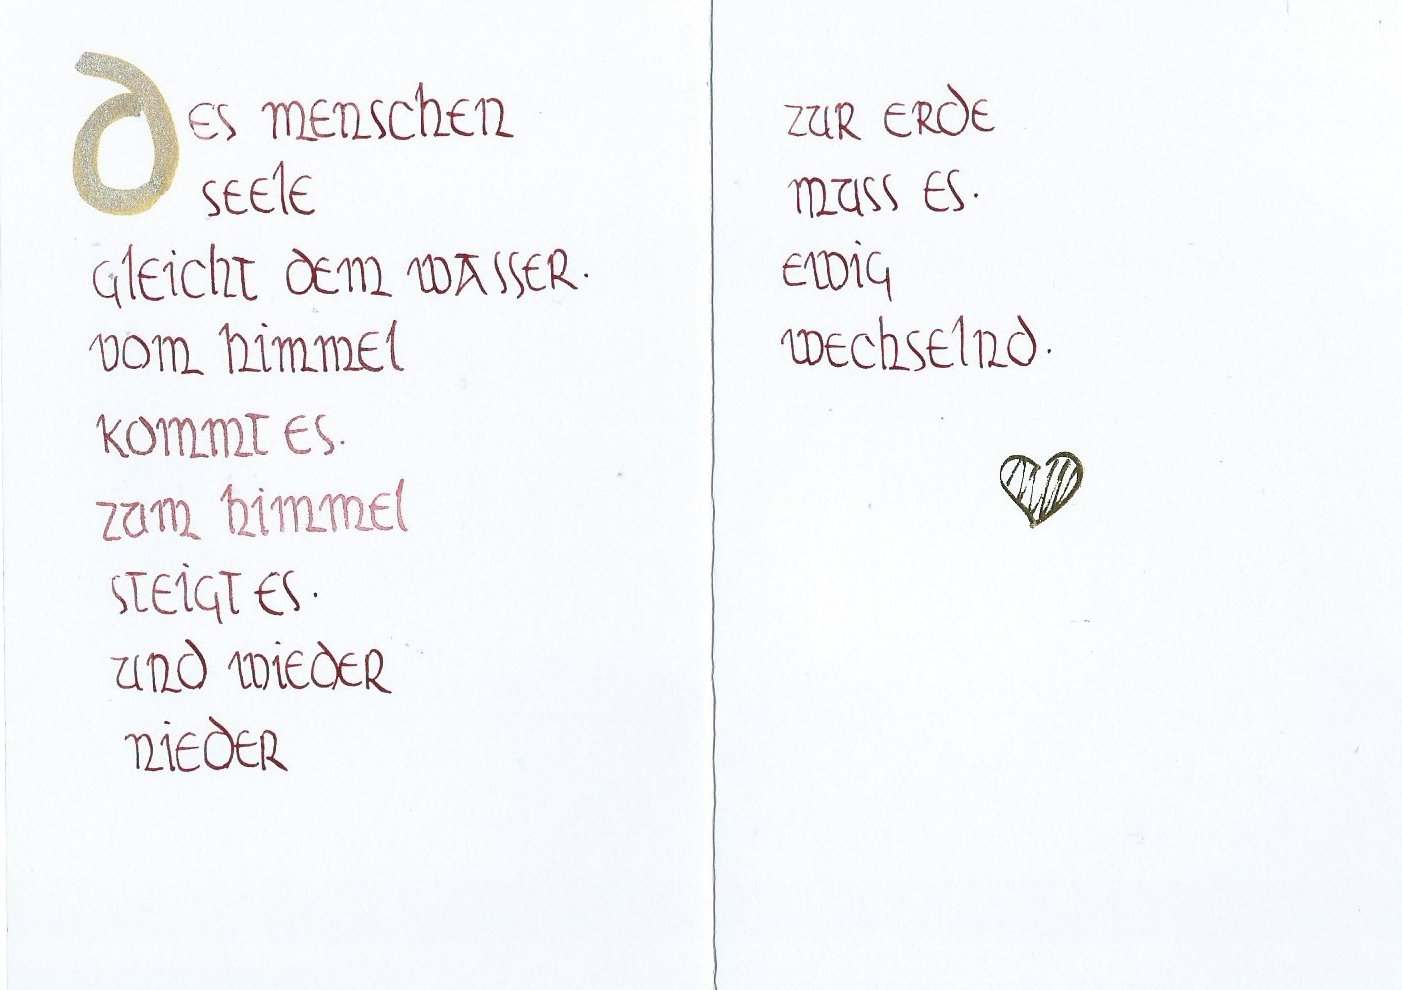 des menschen
seele
gleicht dem wasser.
vom himmel
kommt es.
zum himmel
steigt es.
und wieder
nieder
zur erde
muss es.
ewig
wechselnd.